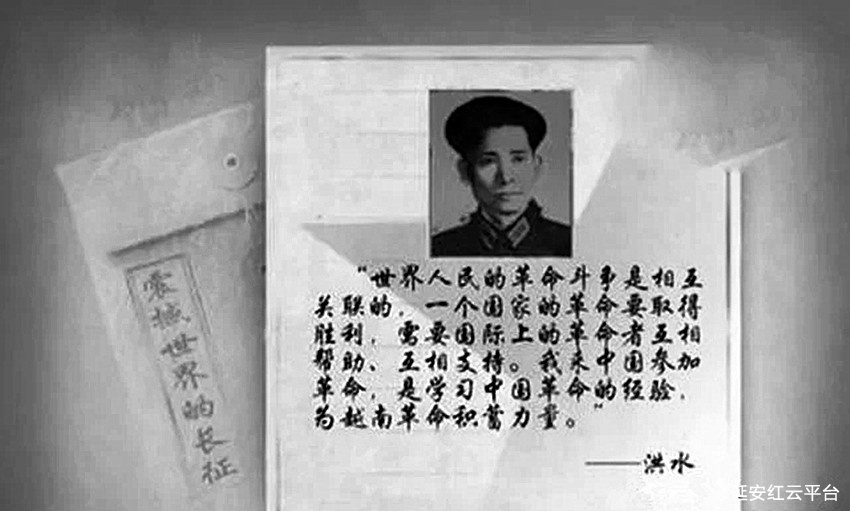 震撼世界的长征
“世界人民的革命斗争是相互
关联的，一个国家的革命要取得
胜利，需要国际上的革命者互相
帮助、互相支持。我来中国参加
革命，是学习中国革命的经验，
为越南革命积蓄力量。”
——洪水
延安红云平台